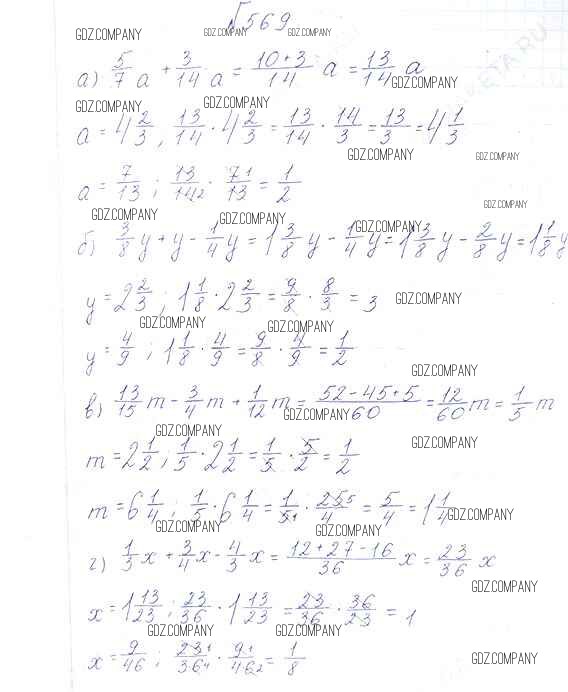 №569
GDZ.COMPANY GDZ.COMPANY GDZ.COMPANY
а) 5/7 a + 3/14 a = (10+3)/14 a = 13/14 a
GDZ.COMPANY
GDZ.COMPANY GDZ.COMPANY
a = 4 2/3, 13/14 · 4 2/3 = 13/14 · 14/3 = 13/3 = 4 1/3
GDZ.COMPANY GDZ.COMPANY
a = 7/13; 13/14 2 · 7 1/13 = 1/2
GDZ.COMPANY GDZ.COMPANY GDZ.COMPANY GDZ.COMPANY
б) 3/8 y + y - 1/4 y = 1 3/8 y - 1/4 y = 1 3/8 y - 2/8 y = 1 1/8 y
y = 2 2/3; 1 1/8 · 2 2/3 = 9/8 · 8/3 = 3 GDZ.COMPANY
GDZ.COMPANY GDZ.COMPANY
y = 4/9; 1 1/8 · 4/9 = 9/8 · 4/9 = 1/2
GDZ.COMPANY
в) 13/15 m - 3/4 m + 1/12 m = (52-45+5)/60 = 12/60 m = 1/5 m
GDZ.COMPANY
GDZ.COMPANY GDZ.COMPANY
m = 2 1/2; 1/5 · 2 1/2 = 1/5 · 5/2 = 1/2
m = 6 1/4; 1/5 · 6 1/4 = 1/5 1 · 25 5/4 = 5/4 = 1 1/4
GDZ.COMPANY
GDZ.COMPANY GDZ.COMPANY
г) 1/3 x + 3/4 x - 4/3 x = (12+27-16)/36 x = 23/36 x
GDZ.COMPANY
x = 1 13/23; 23/36 · 1 13/23 = 23/36 · 36/23 = 1
GDZ.COMPANY GDZ.COMPANY
x = 9/46; 23 1/36 4 · 9 1/46 2 = 1/8
GDZ.COMPANY